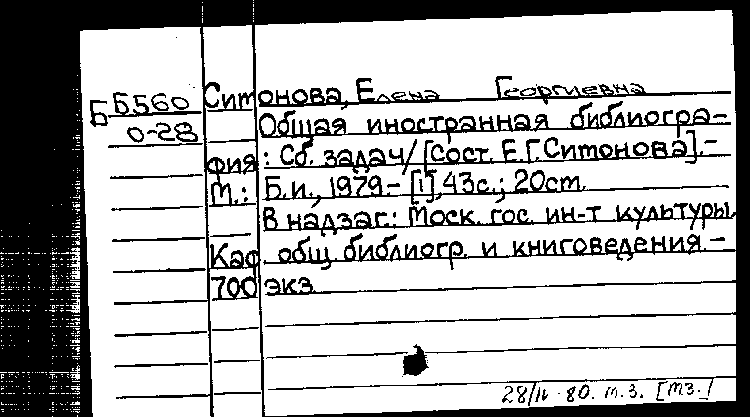 Б Б560 Ситонова, Елена Георгиевна
О-28 Общая иностранная библиогра-
фия: Сб. задач/[Сост. Е.Г.Ситонова].-
М.: Б.и., 1979.- [1], 43с.; 20см.
В надзаг.: Моск. гос. ин-т культуры,
Каф. общ. библиогр. и книговедения.-
700 экз
28/IV-80. м.з. [мз./